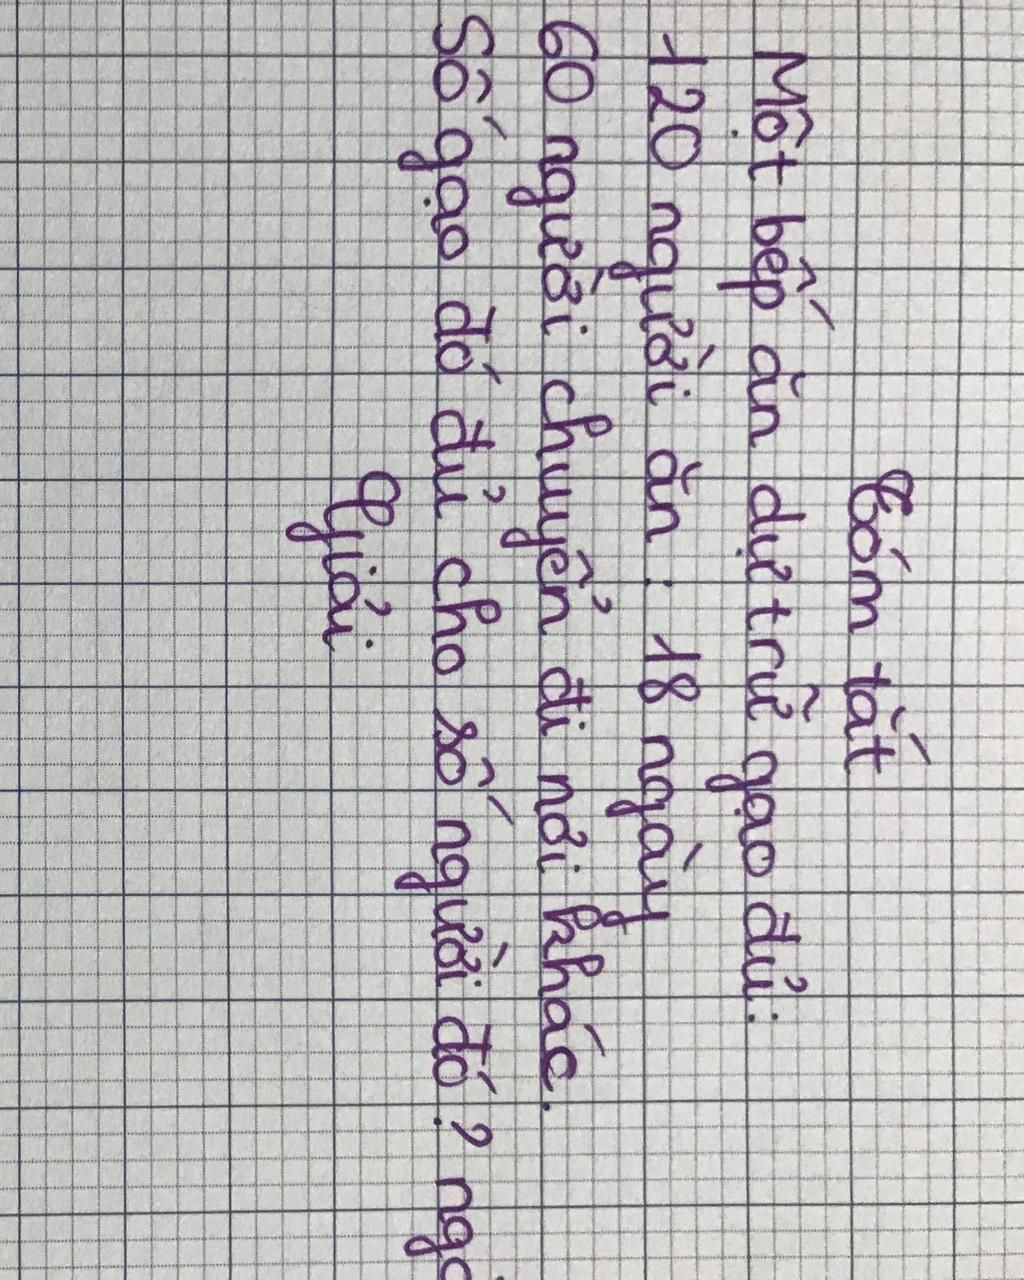 Tóm tắt
Một bếp ăn dự trữ gạo đủ:
120 người ăn : 18 ngày
60 người chuyển đi nơi khác.
Số gạo đó đủ cho số người đó ?
Giải